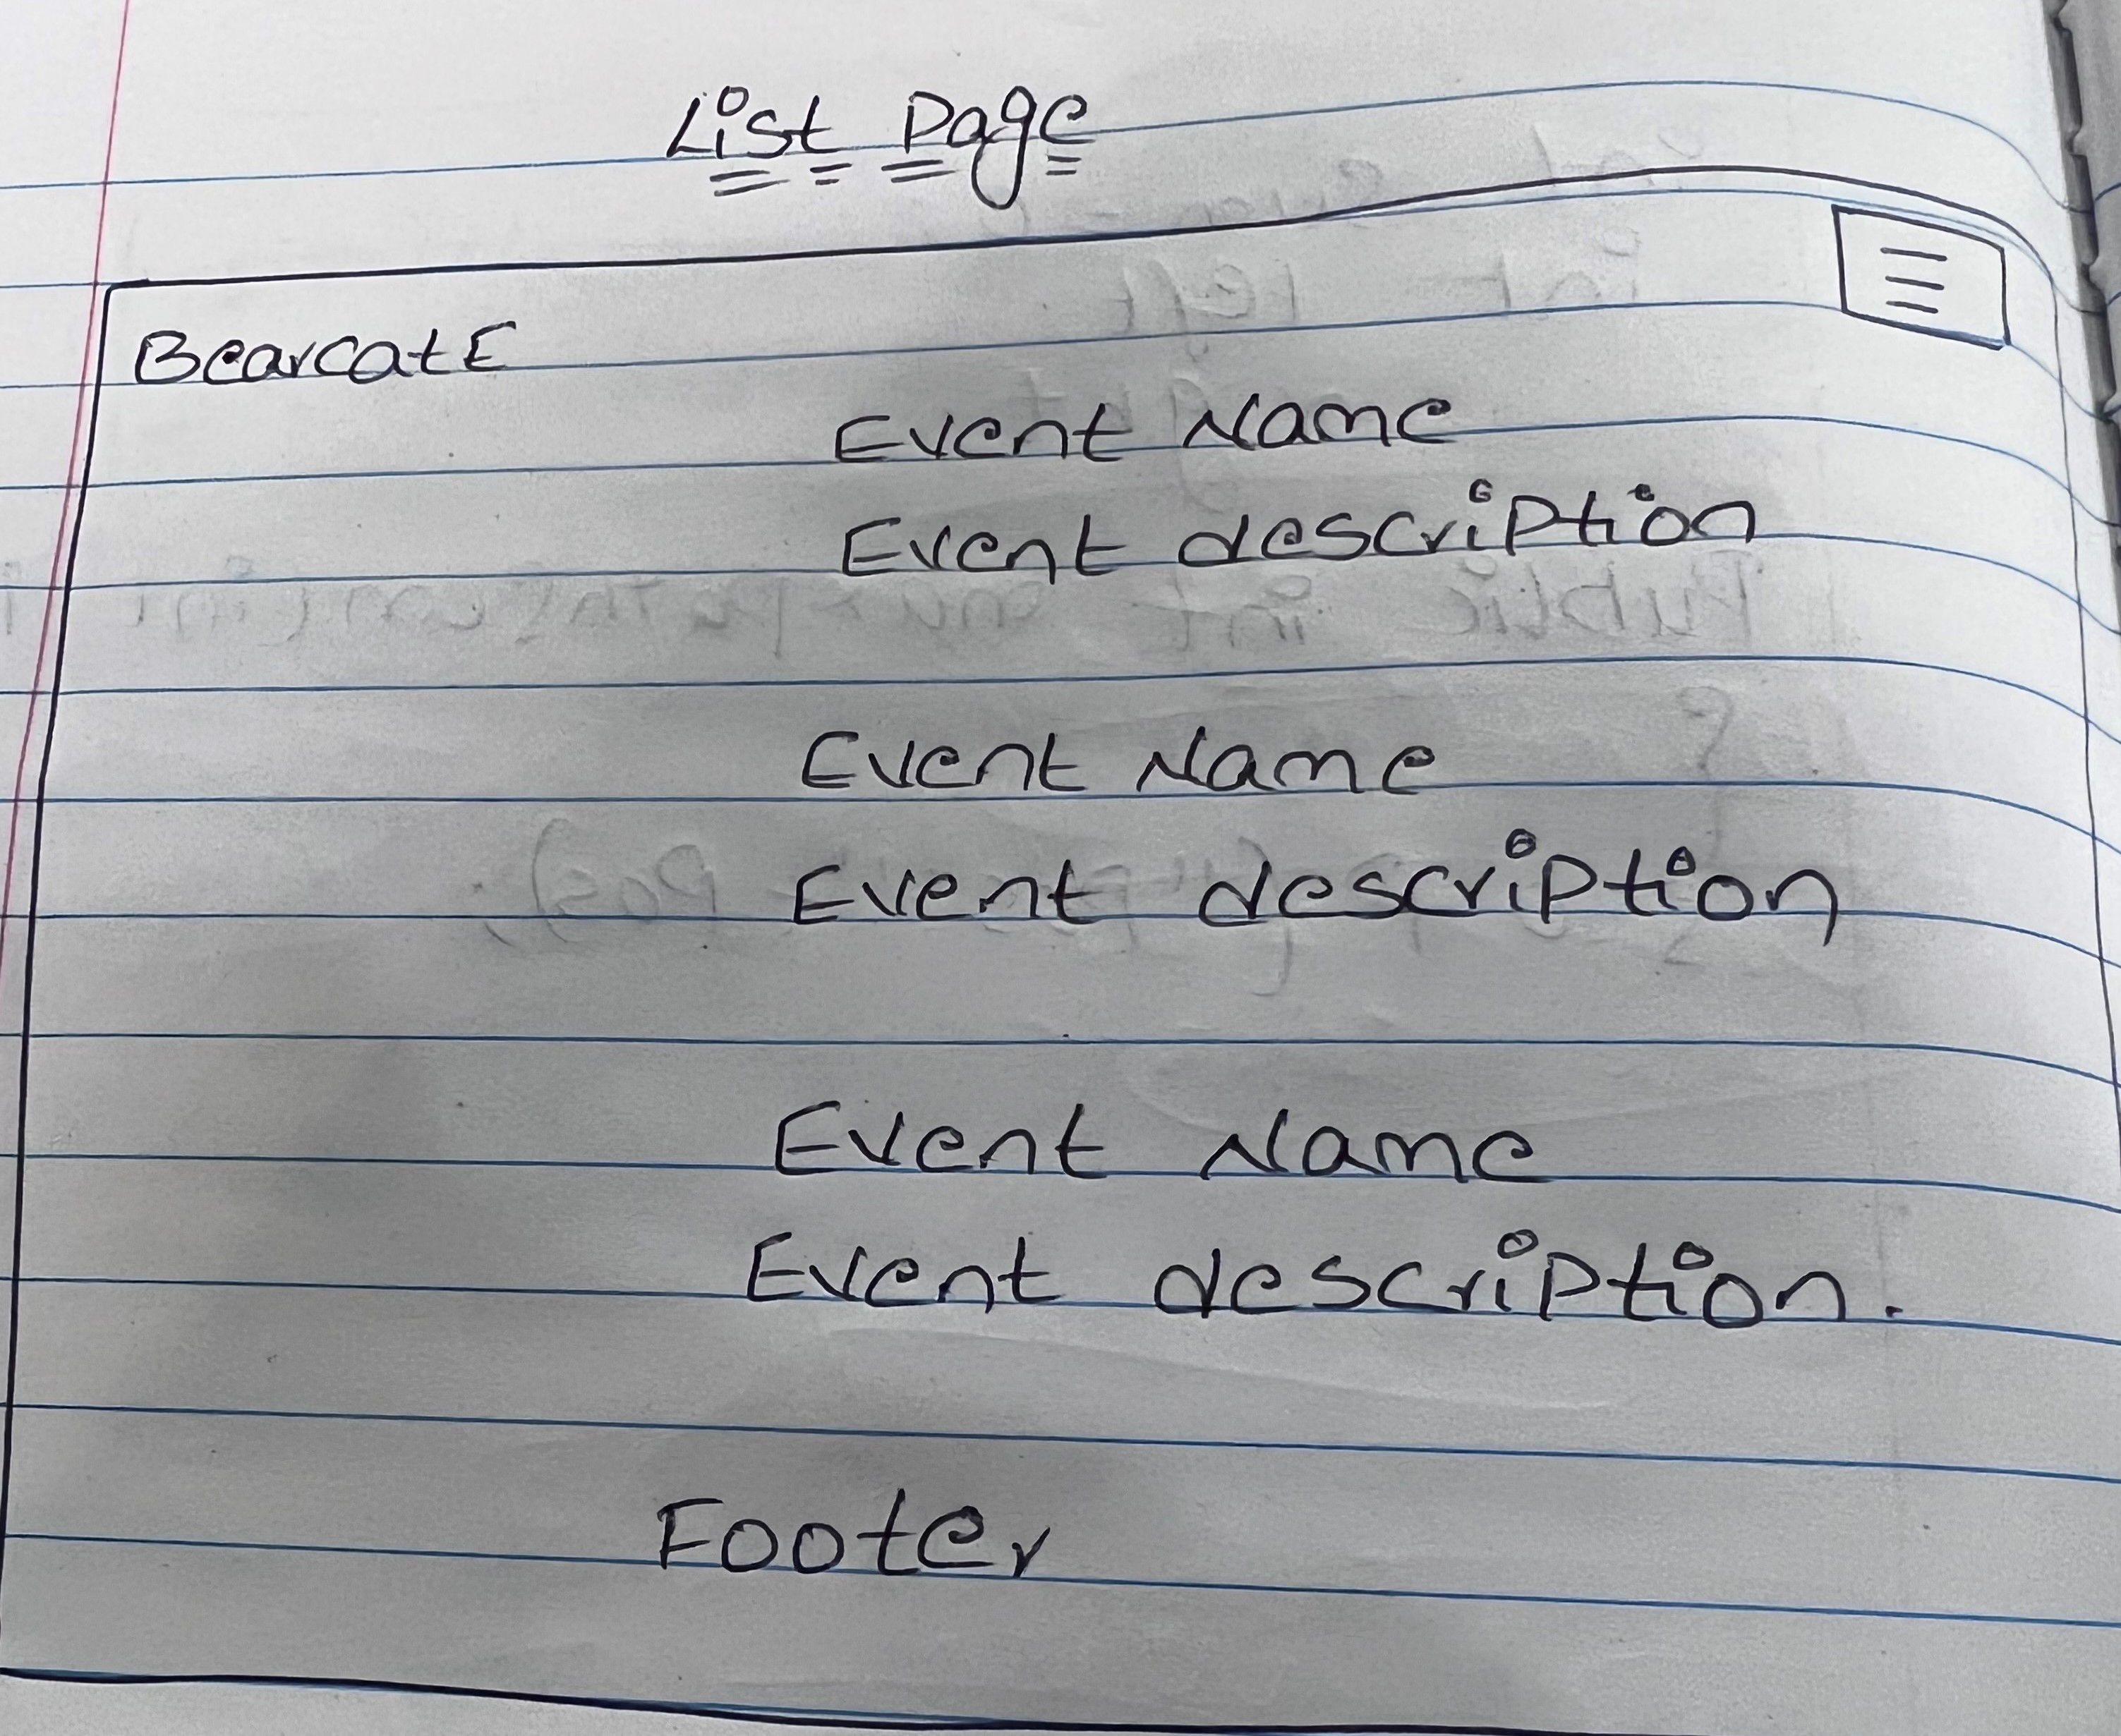 List Page
BearcatE
Event Name
Event description
Event Name
Event description
Event Name
Event description.
Footer